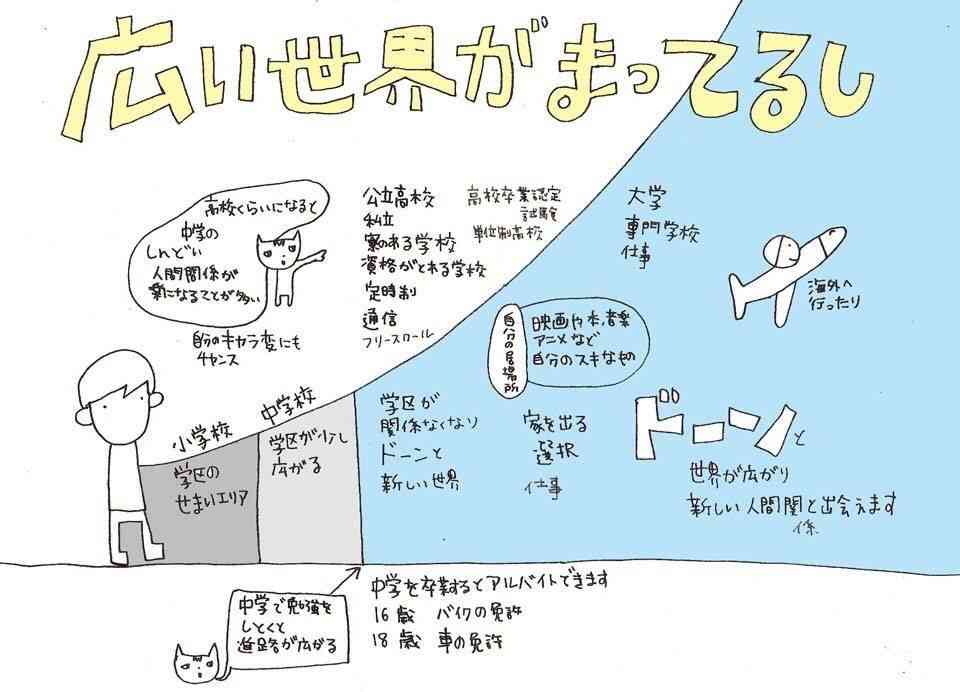 広い世界がまってるし
高校くらいになると
中学の
しんどい
人間関係が
楽になることが多い
自分のキャラ変にも
チャンス
公立高校
私立
寮のある学校
資格がとれる学校
定時制
通信
フリースクール
高校卒業認定
試験
単位制高校
大学
専門学校
仕事
海外へ
行ったり
自分の居場所
映画や本、音楽
アニメなど
自分のスキなもの
小学校
学区の
せまいエリア
中学校
学区が少し
広がる
学区が
関係なくなり
ドーンと
新しい世界
家を出る
選択
仕事
ドーンと
世界が広がり
新しい人間関係と出会えます
中学で勉強を
しとくと
進路が広がる
中学を卒業するとアルバイトできます
16歳 バイクの免許
18歳 車の免許